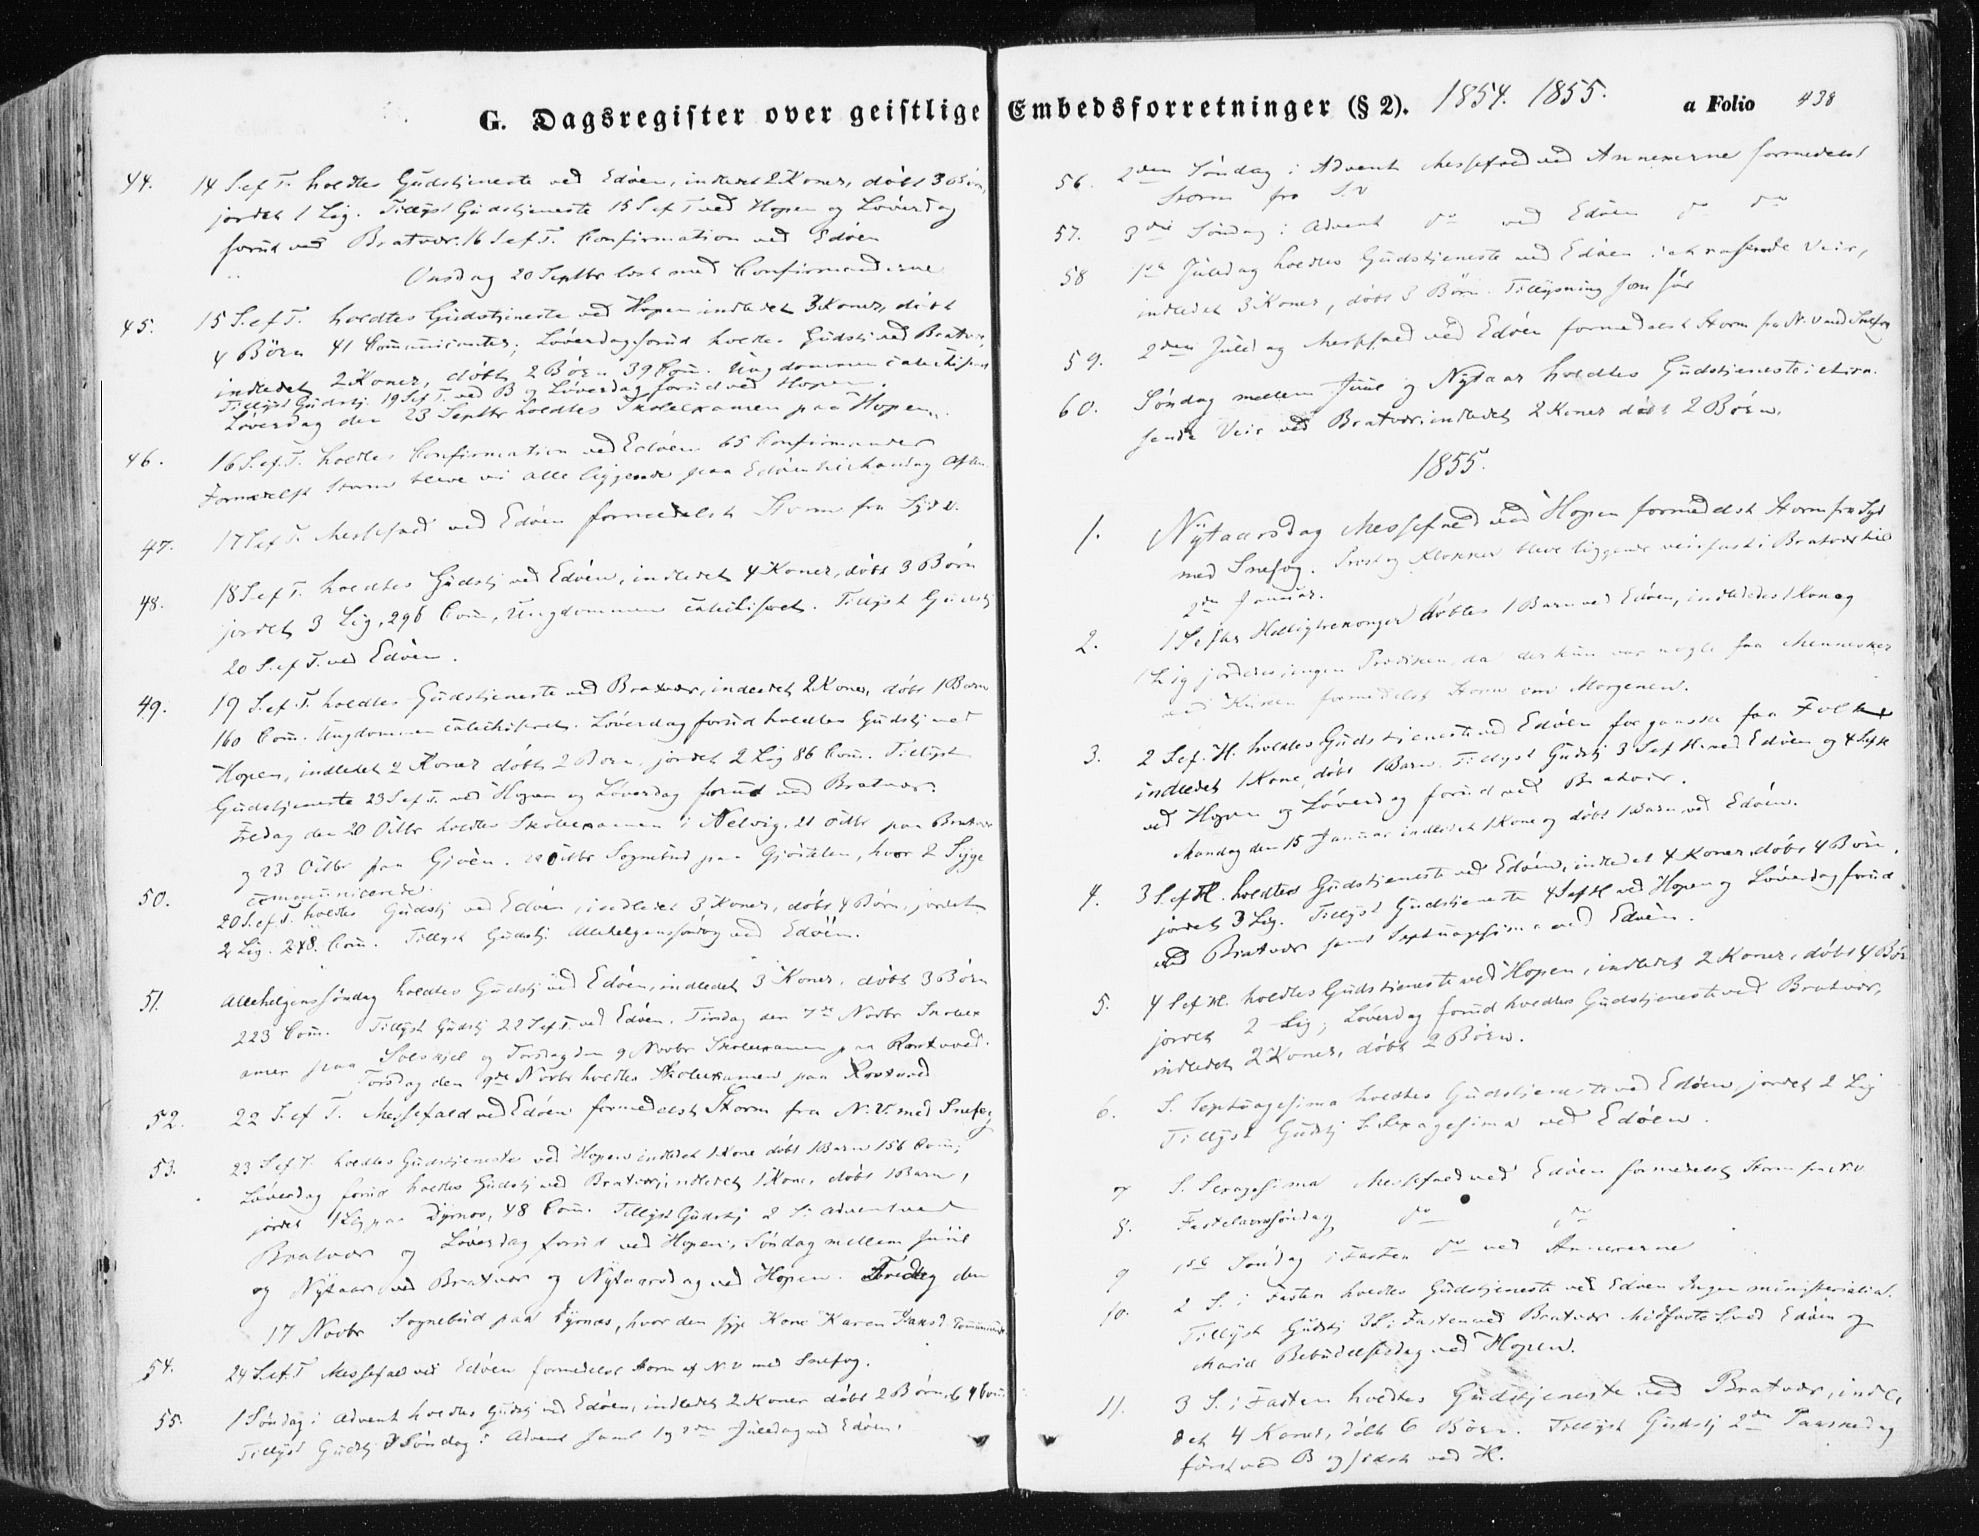 G. Dagsregister over geistlige Embedsforretninger (§ 2). 1854. 1855. a Folio 438
44. 14 S. ef T. holdtes Gudstjeneste ved Edöen, indledet 2 Koner, döbt 3 Börn,
jordet 1 Lig. Tillyst Gudstjeneste 15 S ef T ved Hopen og Löverdag
forud ved Bratvær. 16 S. ef T. Confirmation ved Edöen
Onsdag 20 Septbr læst med Confirmanderne
45. 15 S. ef T. holdtes Gudstjeneste ved Hopen indledet 3 Koner, döbt
4 Börn 41 Communicanter; Löverdag forud holdtes Gudstj ved Bratvær,
indledet 2 Koner, döbt 2 Börn 39 Com. Ungdommen catechiseret
Tillyst Gudstj. 19 S ef T. ved B og Löverdag forud ved Hopen.
Löverdag den 23 Septbr holdtes Skolexamen paa Hopen.
46. 16 S. ef T. holdtes Confirmation ved Edöen 65 Confirmander
Formedelst Storm bleve vi alle liggende paa Edöen til Aften.
47. 17 S ef T. Messefald ved Edöen formedelst Storm fra Syd V.
48. 18 S. ef T. holdtes Gudstj ved Edöen, indledet 4 Koner, döbt 3 Börn
jordet 3 Lig, 296 Com, Ungdommen catechiseret. Tillyst Gudstj
20 S. ef T. ved Edöen.
49. 19 S. ef T. holdtes Gudstjeneste ved Bratvær, indledet 2 Koner, döbt 1 Barn
160 Com. Ungdommen catechiseret. Löverdag forud holdtes Gudstj ved
Hopen, indledet 2 Koner döbt 2 Börn, jordet 2 Lig 86 Com. Tillyst
Gudstjeneste 23 S ef T. ved Hopen og Löverdag forud ved Bratvær.
Fredag den 20 Octbr holdtes Skolexamen i Nelvig, 21 Octbr paa Bratvær
og 23 Octbr paa Gjöen. Octbr Sognebud paa, hvor 2 Syge
communicerede.
50. 20 S. ef T. holdtes Gudstj ved Edöen, indledet 3 Koner, döbt 4 Börn, jordet
2 Lig. 248 Com. Tillyst Gudstj. Allehelgenssöndag ved Edöen.
51. Allehelgenssöndag holdtes Gudstj ved Edöen, indledet 3 Koner, döbt 3 Börn
223 Com. Tillyst Gudstj 22 S ef T. ved Edöen. Tirsdag den 7de Novbr Skolex
amen paa Solskjel og Torsdag den 9 Novbr Skolexamen paa
Torsdag den 9de Novbr holdtes Skolexamen paa
52. 22 S. ef T. Messefald ved Edöen formedelst Storm fra N. V. med Snefog
53. 23 S ef T. holdtes Gudstjeneste ved Hopen indledet 1 Kone döbt 1 Barn 156 Com;
Löverdag forud holdtes Gudstj ved Bratvær, indledet 1 Kone, döbt 1 Barn,
jordet 1 Lig paa Dyrnes, 48 Com. Tillyst Gudstj 2 S. i Advent ved
Bratvær og Löverdag forud ved Hopen, Söndag mellem Juul
og Nytaar ved Bratvær og Nytaarsdag ved Hopen. Fredag den
17 Novbr Sognebud paa Dyrnes, hvor den syge Kone Karen Hansd.
54. 24 S. ef T Messefald ved Edöen formedelst Storm af N. V med Snefog.
55. 1 Söndag i Advent holdtes Gudstj ved Edöen, indledet 2 Koner döbt 2 Börn, 64 Com
Tillyst Gudstj 3 Söndag i Advent samt 1 og 2den Juledag ved Edöen.
56. 2den Söndag i Advent Messefald ved Annexerne formedelst
Storm fra S. V
57. 3die Söndag i Advent do ved Edöen do do
58 1ste Juledag holdtes Gudstjeneste ved Edöen i et rasende Veir,
indledet 3 Koner, döbt 3 Börn. Tillysning som för
59. 2den Juledag Messefald ved Edöen formedelst Storm fra N. V med Snefog
60. Söndag mellem Juul og Nytaar holdtes Gudstjeneste i et ra-
sende Veir ved Bratvær, indledet 2 Koner döbt 2 Börn.
1855.
1. Nytaarsdag Messefald ved Hopen formedelst Storm fra Syd
med Snefog. Præst og Klokker bleve liggende veirfast i Bratvær til
2den Januar.
2. 1 S efter Helligtrekonger döbtes 1 Barn ved Edöen, indlededes 1 Kone og
1 Lig jordedes, ingen Prædiken, da der kun var nogle faa Mennesker
ved Kirken formedelst Storm om Morgenen.
3. 2 S. ef. H. holdtes Gudstjeneste ved Edöen for ganske faa Folk
indledet 1 Kone, döbt 1 Barn. Tillyst Gudstj 3 S ef H. ved Edöen og 4 S ef H
ved Hopen og Löverdag forud ved Bratvær.
Mandag den 15 Januar indledet 1 Kone og döbt 1 Barn ved Edöen.
4. 3 S. ef H. holdtes Gudstjeneste ved Edöen, indledet 4 Koner, döbt 4 Börn,
jordet 3 Lig. Tillyst Gudstjeneste 4 S ef H ved Hopen og Löverdag forud
ved Bratvær samt Septuagesima ved Edöen.
5. 4 S ef H. holdtes Gudstjeneste ved Hopen, indledet 2 Koner, döbt 4 Börn
jordet 2 Lig; Löverdag forud holdtes Gudstjeneste ved Bratvær,
indledet 2 Koner, döbt 2 Börn.
6. S. Septuagesima holdtes Gudstjeneste ved Edöen jordet 2 Lig
Tillyst Gudstj S. Sexagesima ved Edöen.
7 S. Sexagesima Messefald ved Edöen formedelst Storm fra N. V.
8. Fastelavnssöndag do do
9 1ste Söndag i Fasten do ved Annexerne
10. 2 S. i Fasten holdtes Gudstjeneste ved Edöen Ingen ministerialia.
Tillyst Gudstj 3 S. i Fasten ved Bratvær Midfaste S. ved Edöen og
Mariæ Bebudelsesdag ved Hopen.
11. 3 S. i Fasten holdtes Gudstjeneste ved Bratvær, indle-
det 4 Koner, döbt 6 Börn. Tillyst Gudstj 2den Paaskedag
först ved B og sidst ved H.